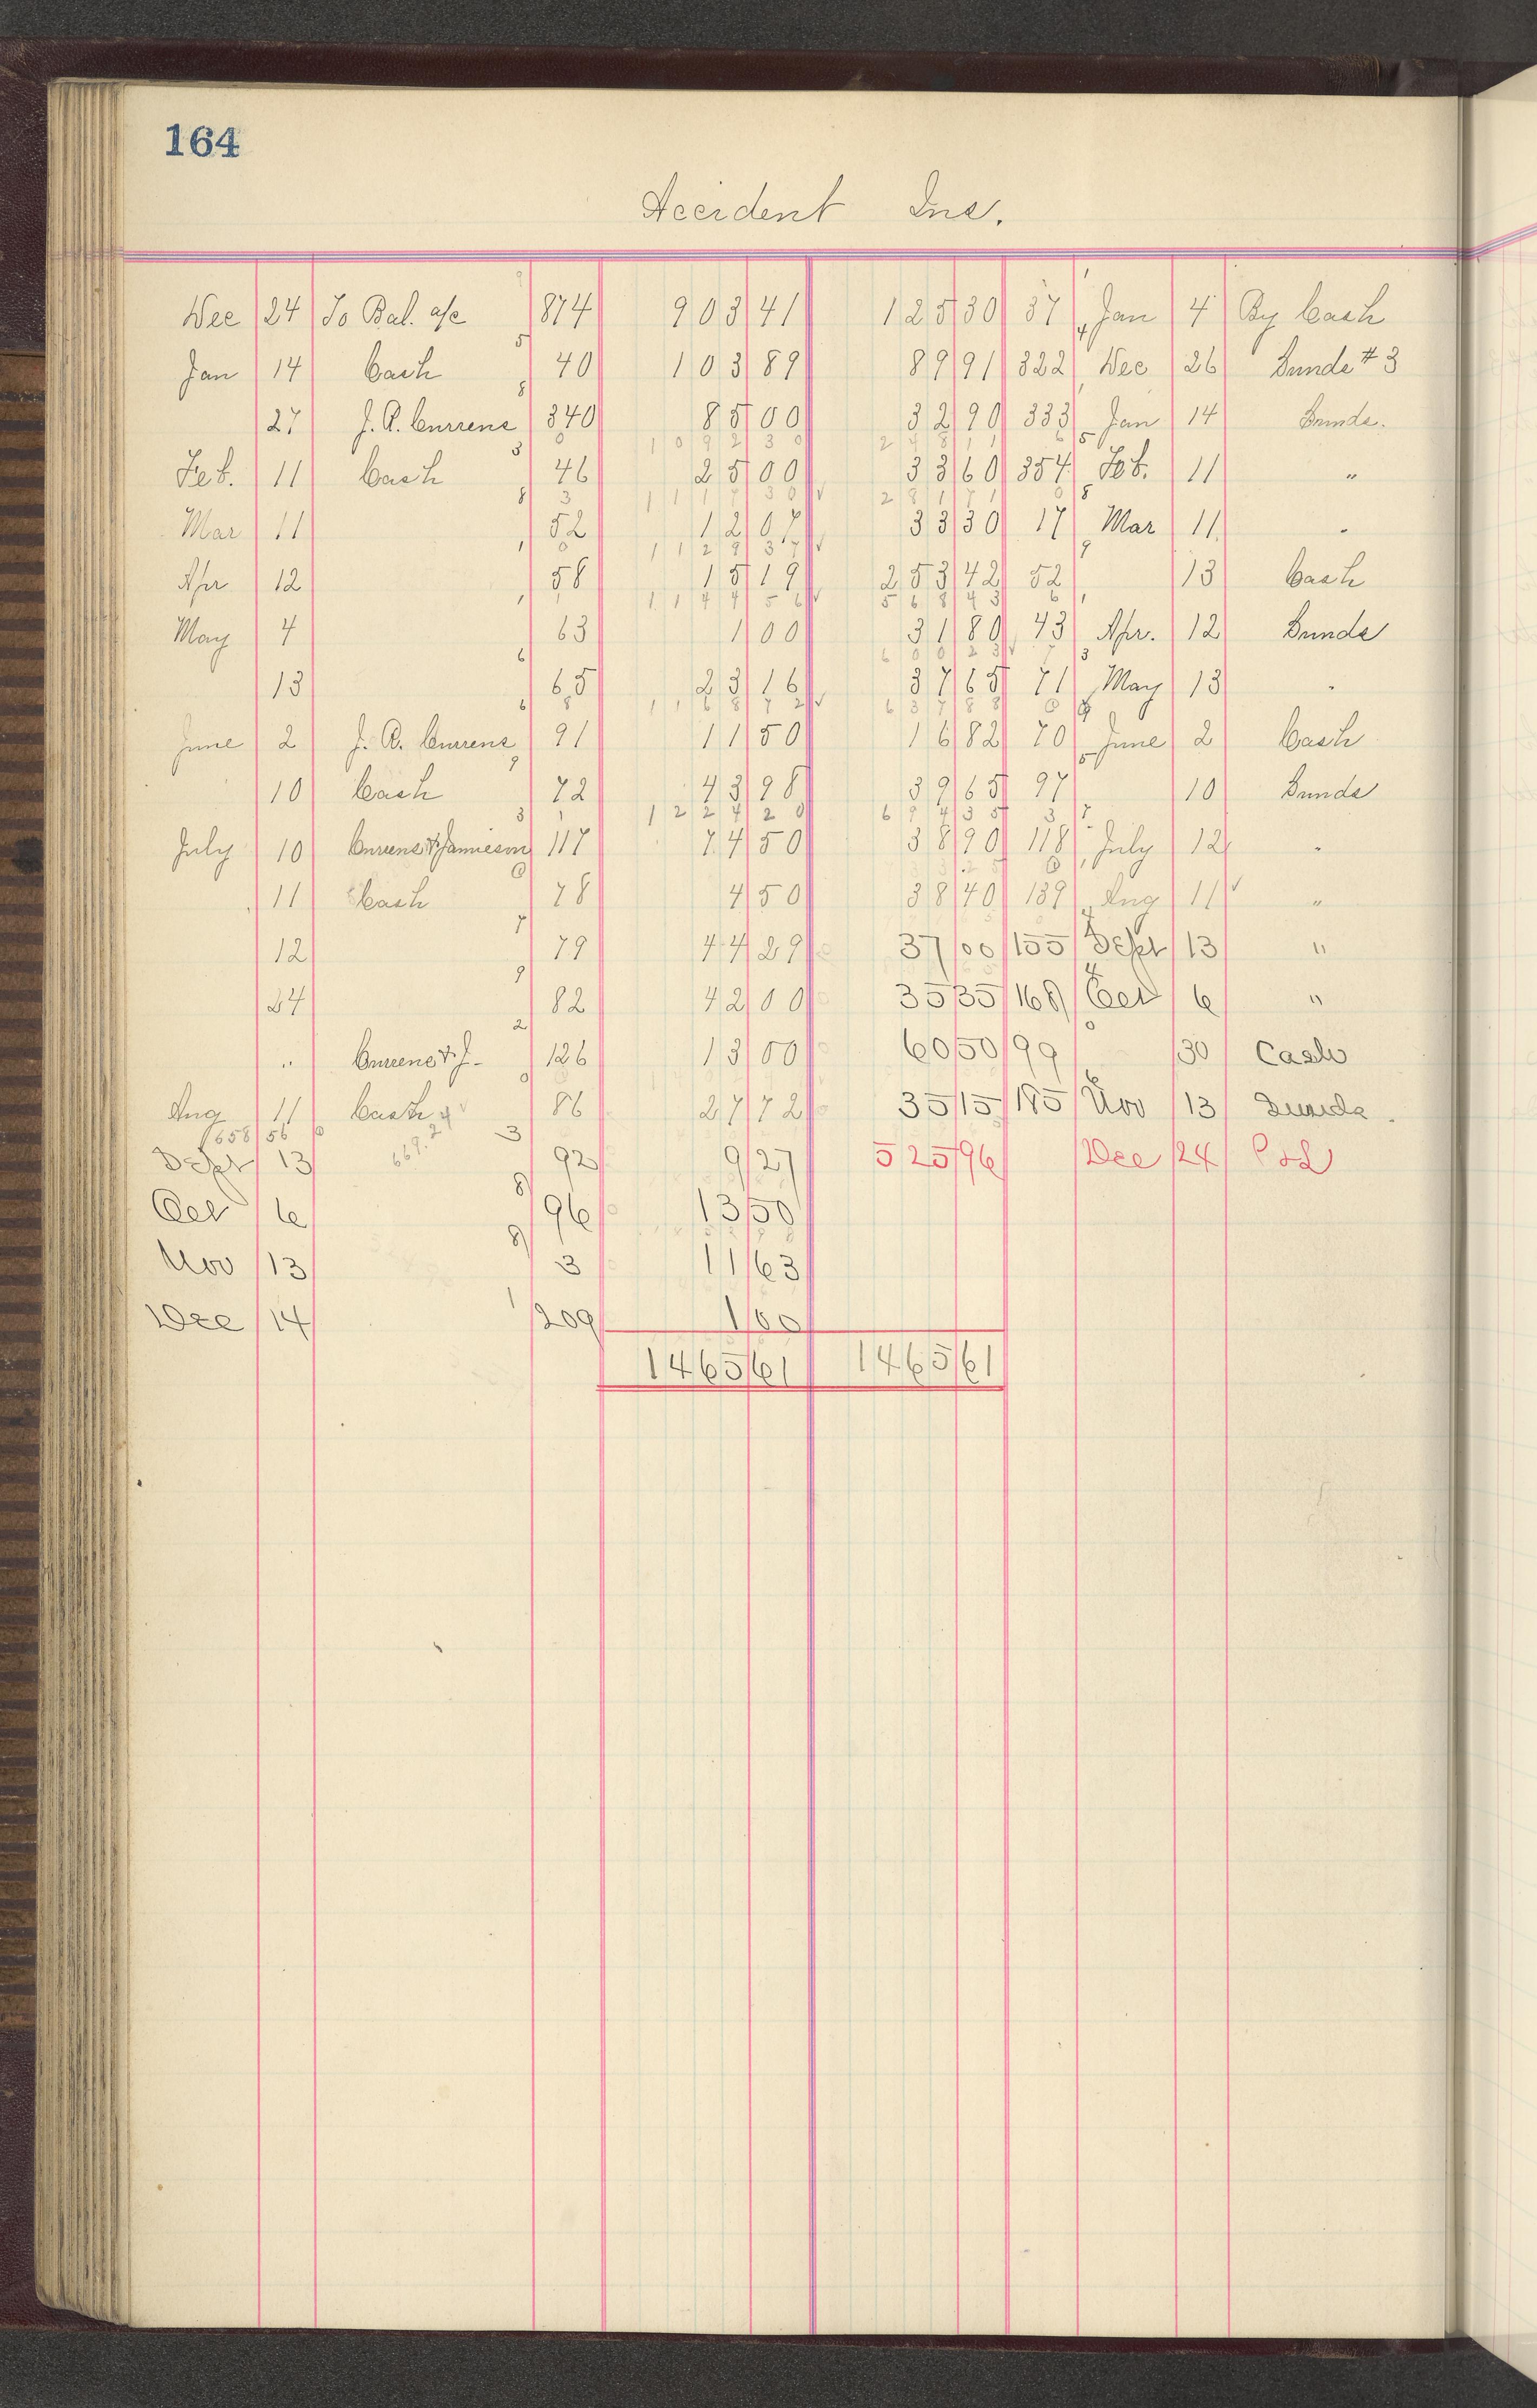 164
Accident Ins.
Dec 24 To Bal. a/c 874 903 41 125 30 37 Jan 4 By Cash
Jan 14 Cash 40 103 89 89 91 322 Dec 26 Sunds # 3
27 J. A. Currens 340 85 00 32 90 333 Jan 14 Sunds.
1092 30 248 11
Feb. 11 Cash 46 25 00 33 60 354 Feb. 11 "
1117 30 281 71
Mar 11 52 12 07 33 30 17 Mar 11 "
1129 37
Apr 12 58 15 19 253 42 52 13 Cash
1144 56 568 43
May 4 63 1 00 31 80 43 Apr. 12 Sunds
600 23
13 65 23 16 37 65 71 May 13 "
1168 72 637 88
June 2 J. A. Currens 91 11 50 16 82 70 June 2 Cash
10 Cash 72 43 98 39 65 97 10 Sunds
1224 20 694 35
July 10 Currens & Jamieson 117 74 50 38 90 118 July 12 "
11 Cash 78 4 50 38 40 139 Aug 11 "
12 79 44 29 37 00 155 Sept 13 "
24 82 42 00 35 35 168 Oct 6 "
" Currens & J- 126 13 00 60 50 99 30 Cash
Aug 11 Cash 86 27 72 35 15 185 Nov 13 Sunds.
1658 56 669.24
Sept 13 92 9 27 525 96 Dec 24 P & L
Oct 6 96 13 50
Nov 13 3 11 63
Dec 14 209 1 00
1465 61 1465 61